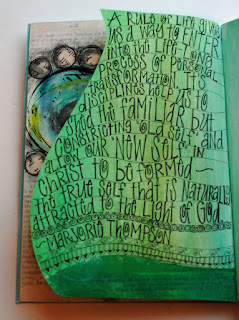 A RULE OF LIFE gives
us A WAY TO ENTER
INTO THE LIFE-LONG
PROCESS OF PERSONAL
TRANSFORMATION. ITS
DISCIPLINES HELP US TO
SHED THE FAMILIAR BUT
CONSTRICTING OLD SELF AND
ALLOW OUR NEW SELF IN
CHRIST TO BE FORMED ~
THE TRUE SELF THAT IS NATURALLY
attracted to the light of God.
~MARJORIE THOMPSON